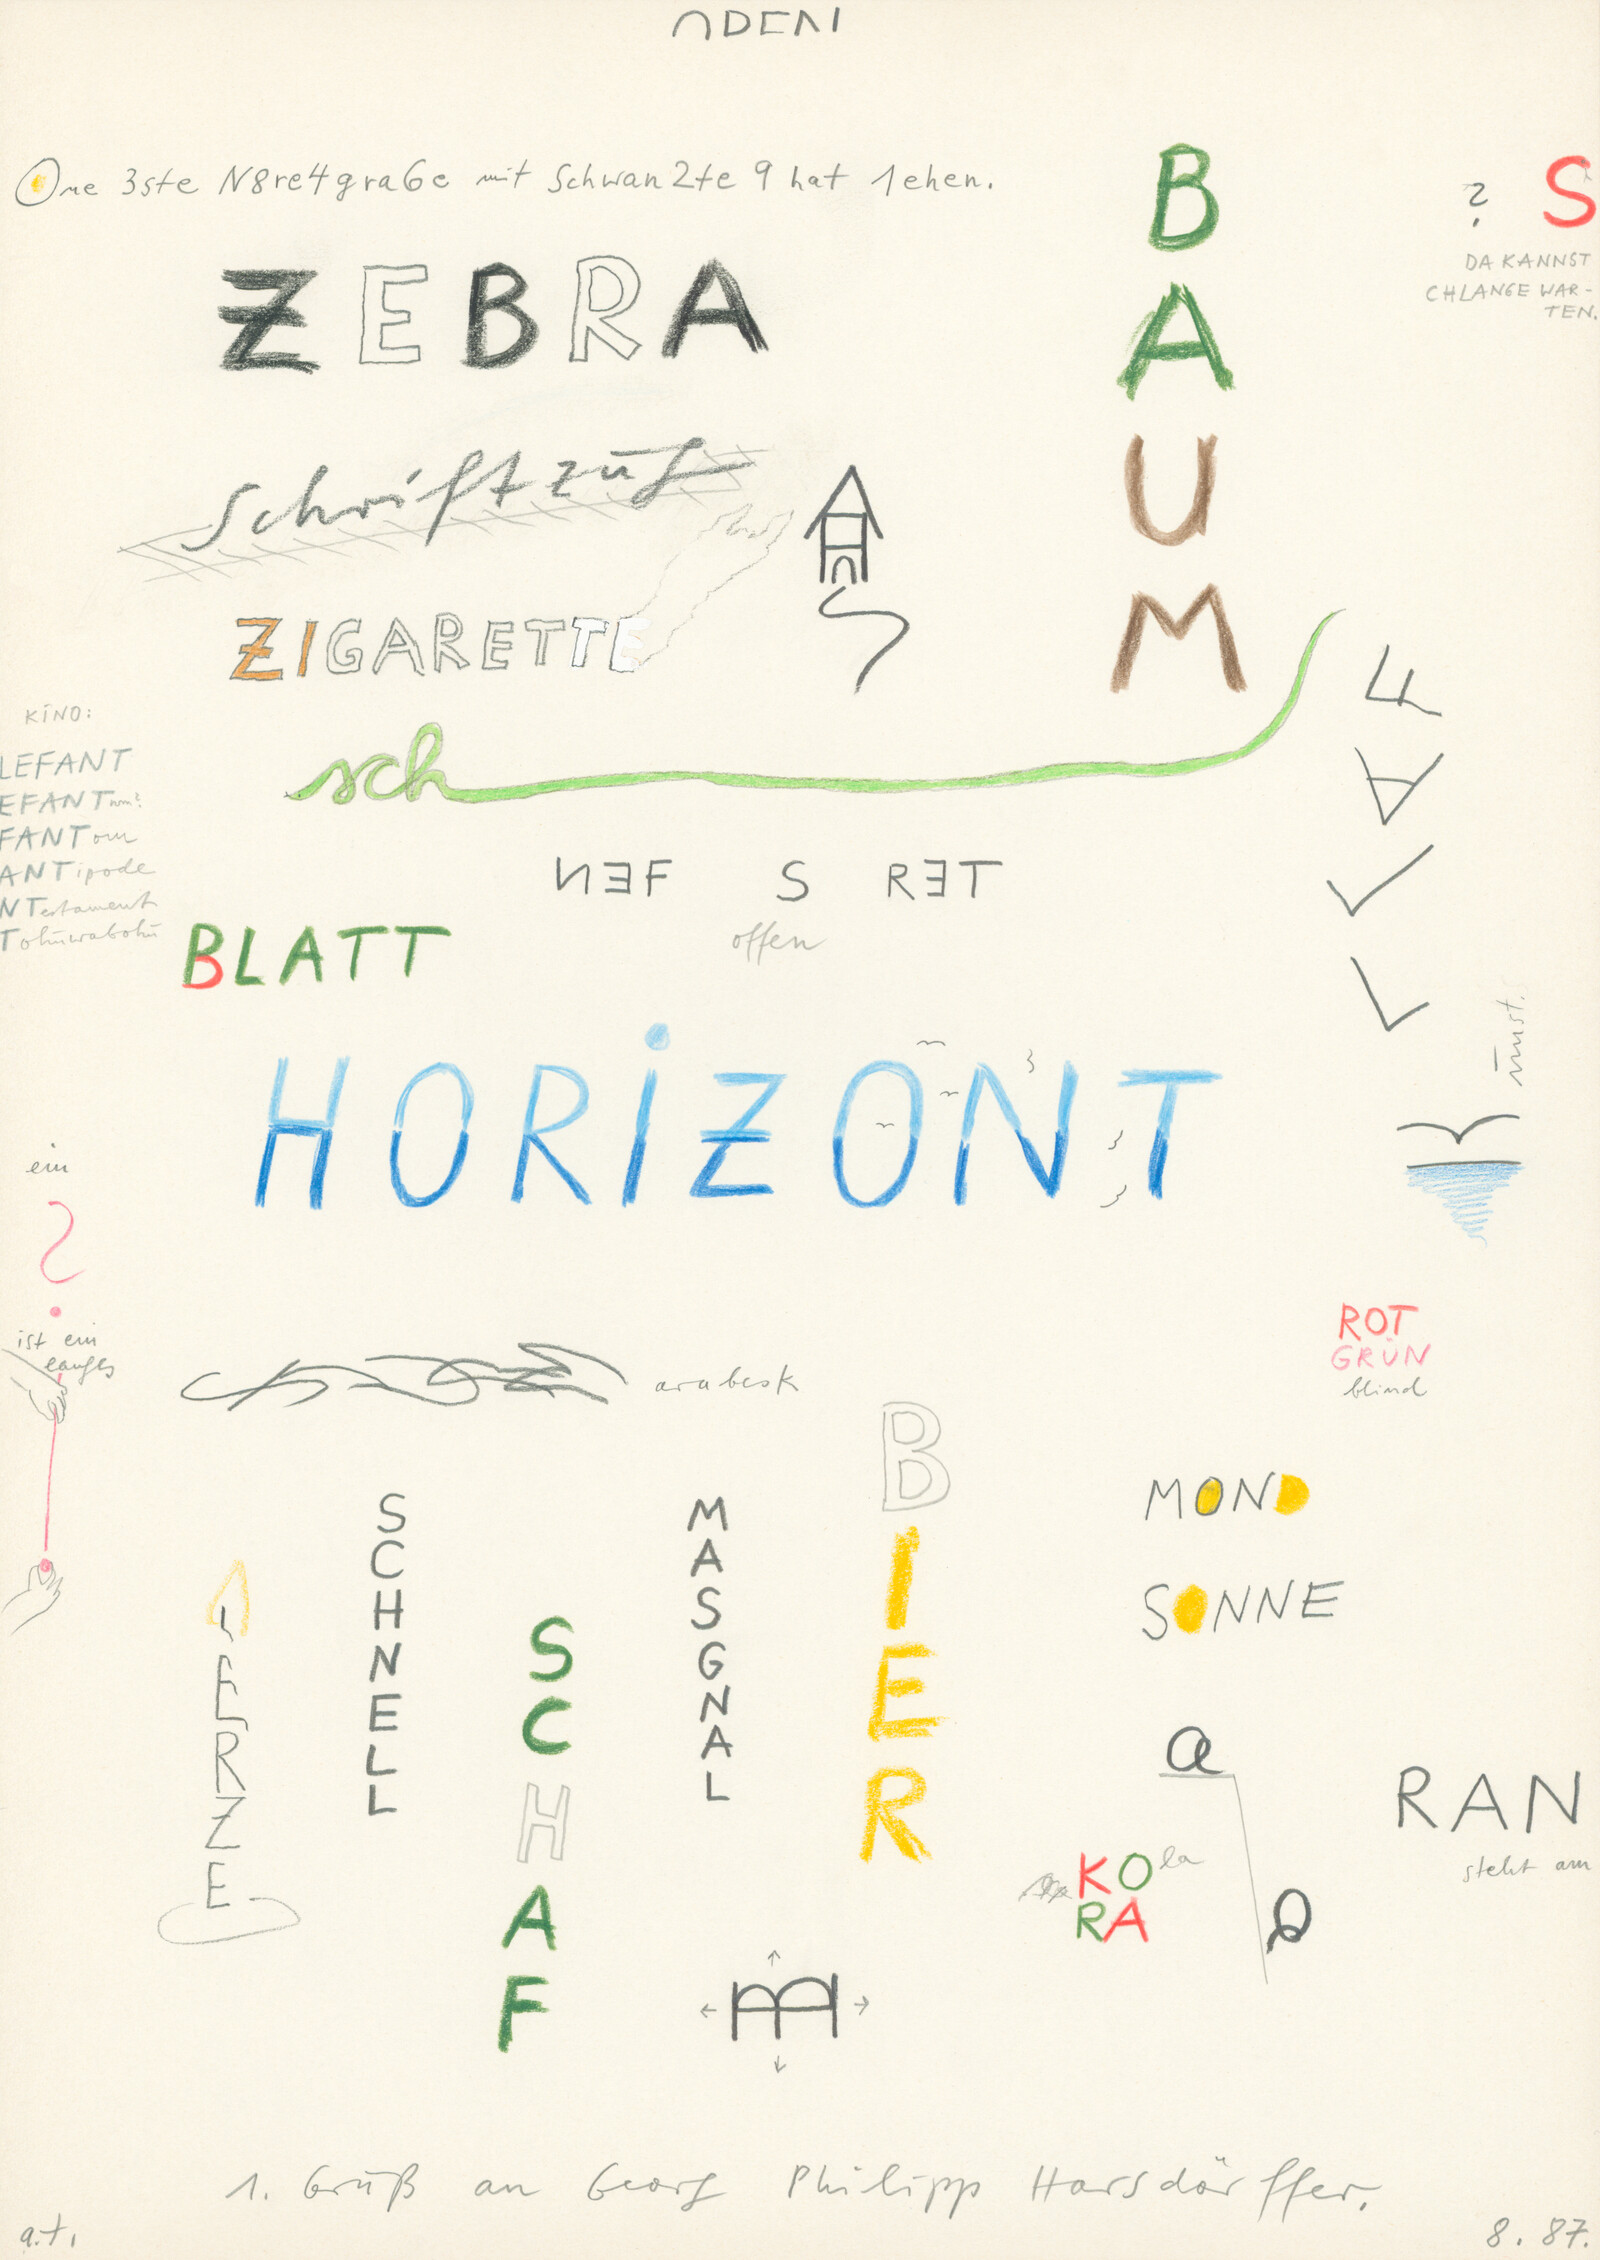 One 3ste N8re4gra6e mit Schwan2te 9 hat 1ehen.
BAUM
?
S
DA KANNST
CHLANGE WAR-
TEN.
ZEBRA
Schriftzug
ZIGARETTE
KINO:
LEFANT
EFANT
FANTom
ANTipode
NTestament
Tohuwabohu
sch
FALL
NEF S RET
offen
BLATT
HORIZONT
ein
?
ist ein
langes
ROT
GRÜN
blind
arabesk
BIER
SCHNELL
MASGNAL
SCHAF
ERZE
MOND
SONNE
a
a
RAN
steht am
KOla
RA
1. Gruß an Georg Philipp Harsdörffer.
a.t.
8. 87.